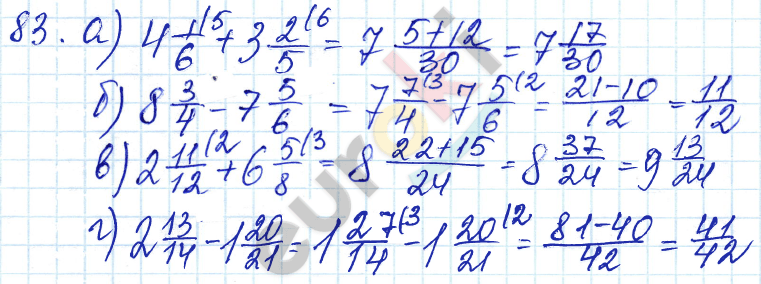 83. а) 4 1/6 (5 + 3 2/5 (6 = 7 (5+12)/30 = 7 17/30
б) 8 3/4 - 7 5/6 = 7 7/4 (3 - 7 5/6 (2 = (21-10)/12 = 11/12
в) 2 11/12 (2 + 6 5/8 (3 = 8 (22+15)/24 = 8 37/24 = 9 13/24
г) 2 13/14 - 1 20/21 = 1 27/14 (3 - 1 20/21 (2 = (81-40)/42 = 41/42
euroki